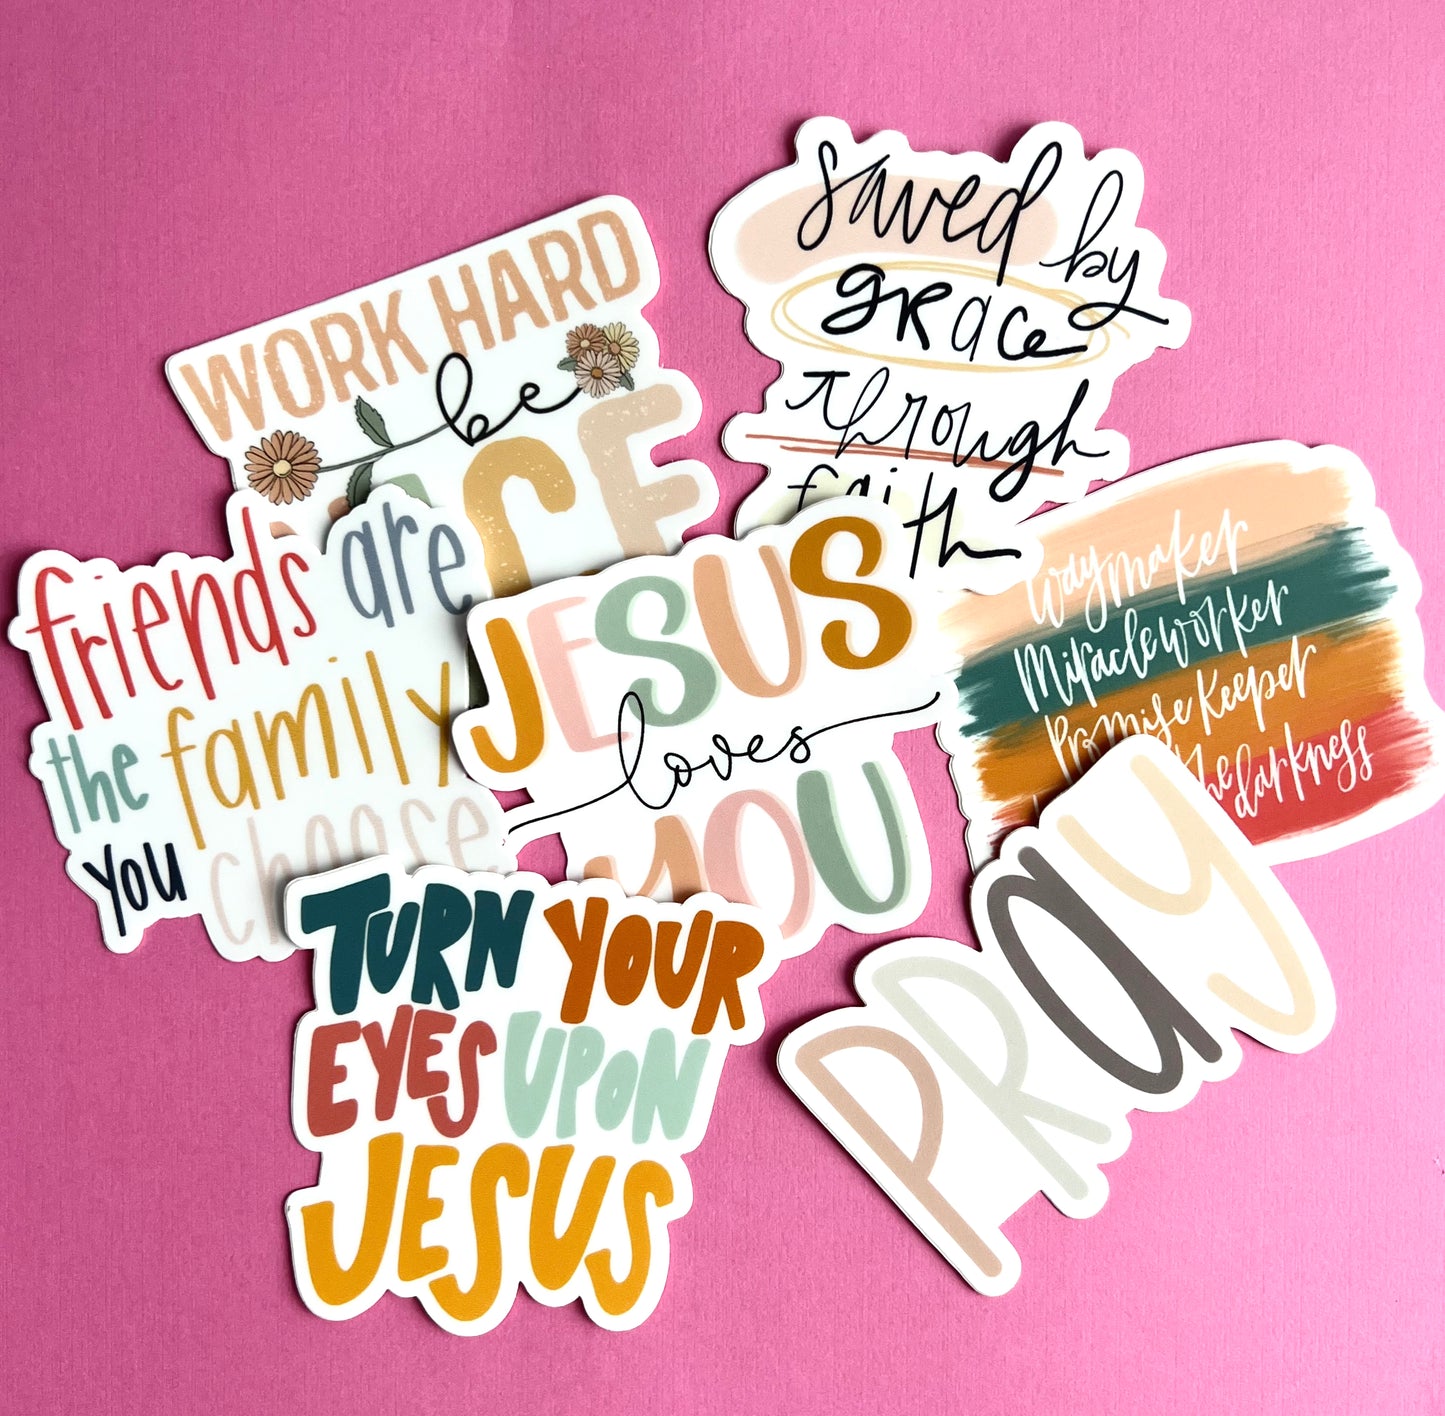 WORK HARD
be
saved by
grace
through
faith
friends are
the family
you choose
JESUS
loves
YOU
Waymaker
Miracle worker
Promise Keeper
the darkness
TURN YOUR
EYES UPON
JESUS
PRay